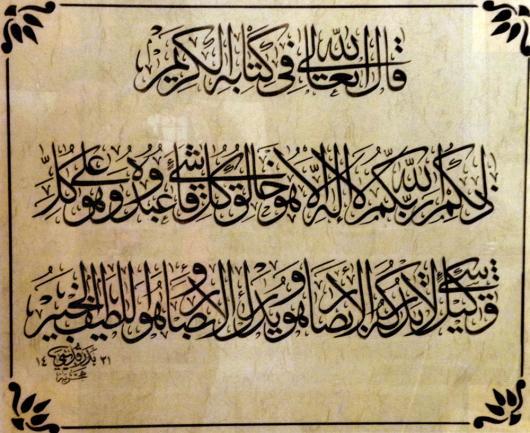 قال الله تعالى في كتابه الكريم
ذلكم الله ربكم لا إله إلا هو خالق كل شيء فاعبدوه وهو على كل
شيء وكيل لا تدركه الأبصار وهو يدرك الأبصار وهو اللطيف الخبير
١٤٢١